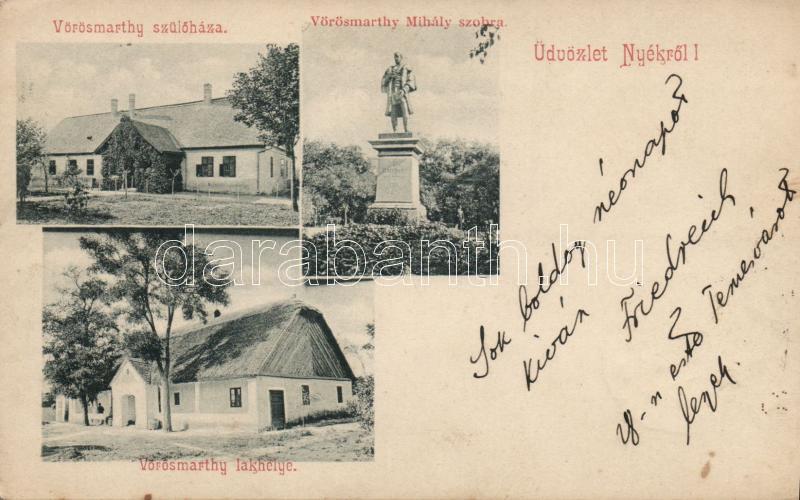 Vörösmarthy szülőháza.
Vörösmarthy Mihály szobra.
Üdvözlet Nyékről!
Sok boldog néonapot
kiván
Friedreich
8-n este Temesvárott
leszek.
Vörösmarthy lakhelye.
darabanth.hu